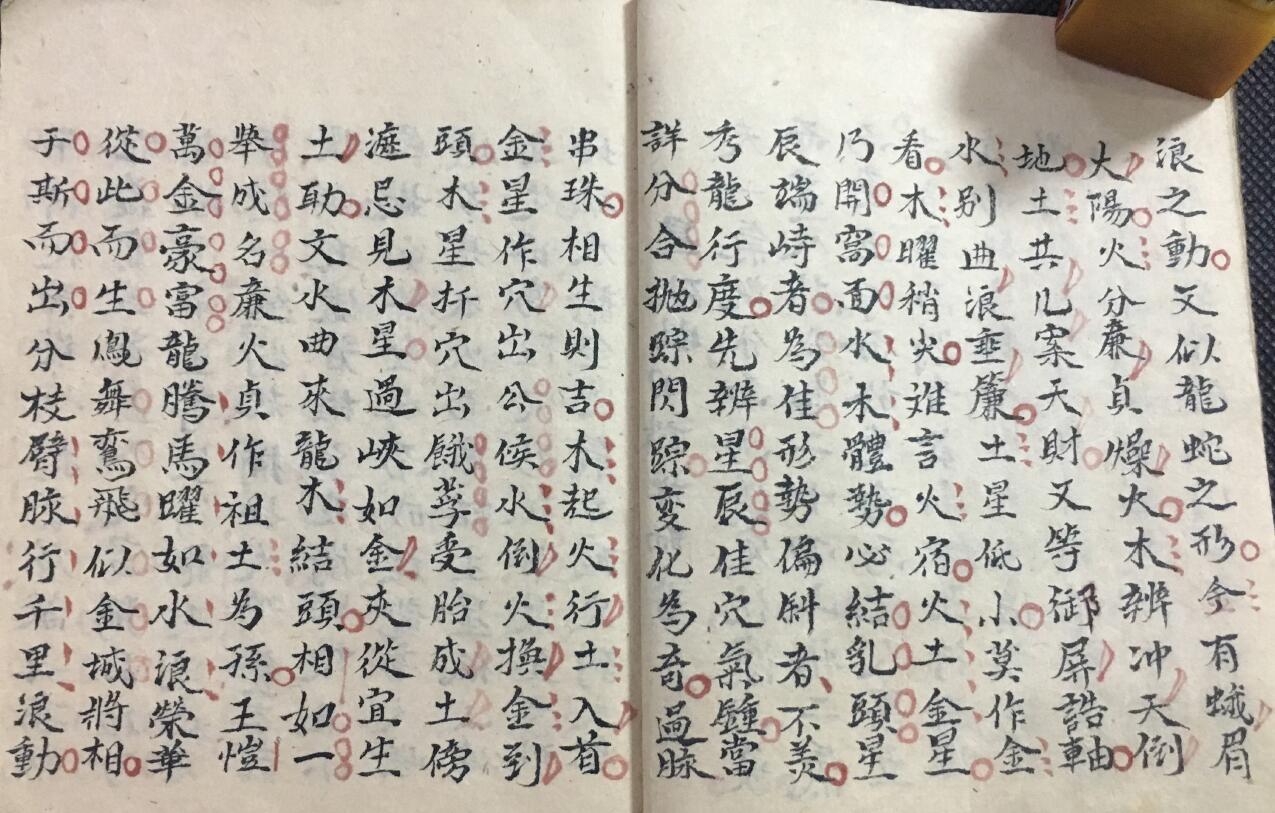 浪之動又似龍蛇之形今有蛾眉
太陽火分廉貞燥火木辨冲天倒
地土共几案天財又号御屏誥軸
水别曲浪垂簾土星低小莫作金
看木曜稍尖难言火宿火土金星
乃開窩面水木體勢必結乳頭星
辰端峙者為佳形勢偏斜者不美
秀龍行度先辨星辰佳穴氣鍾當
詳分合抛踪閃踪变化為奇過脉
串珠相生則吉木起火行土入首
金星作穴出公侯水倒火換金到
頭木星扦穴出餓莩受胎成土傍
遮忌見木星過峽如金夾從宜生
土助文水曲來龍木結頭相如一
舉成名廉火貞作祖土為孫王愷
萬金豪富龍騰馬曜如水浪榮華
從此而生鳳舞鸞飛似金城將相
于斯而出分枝臂脉行千里浪動